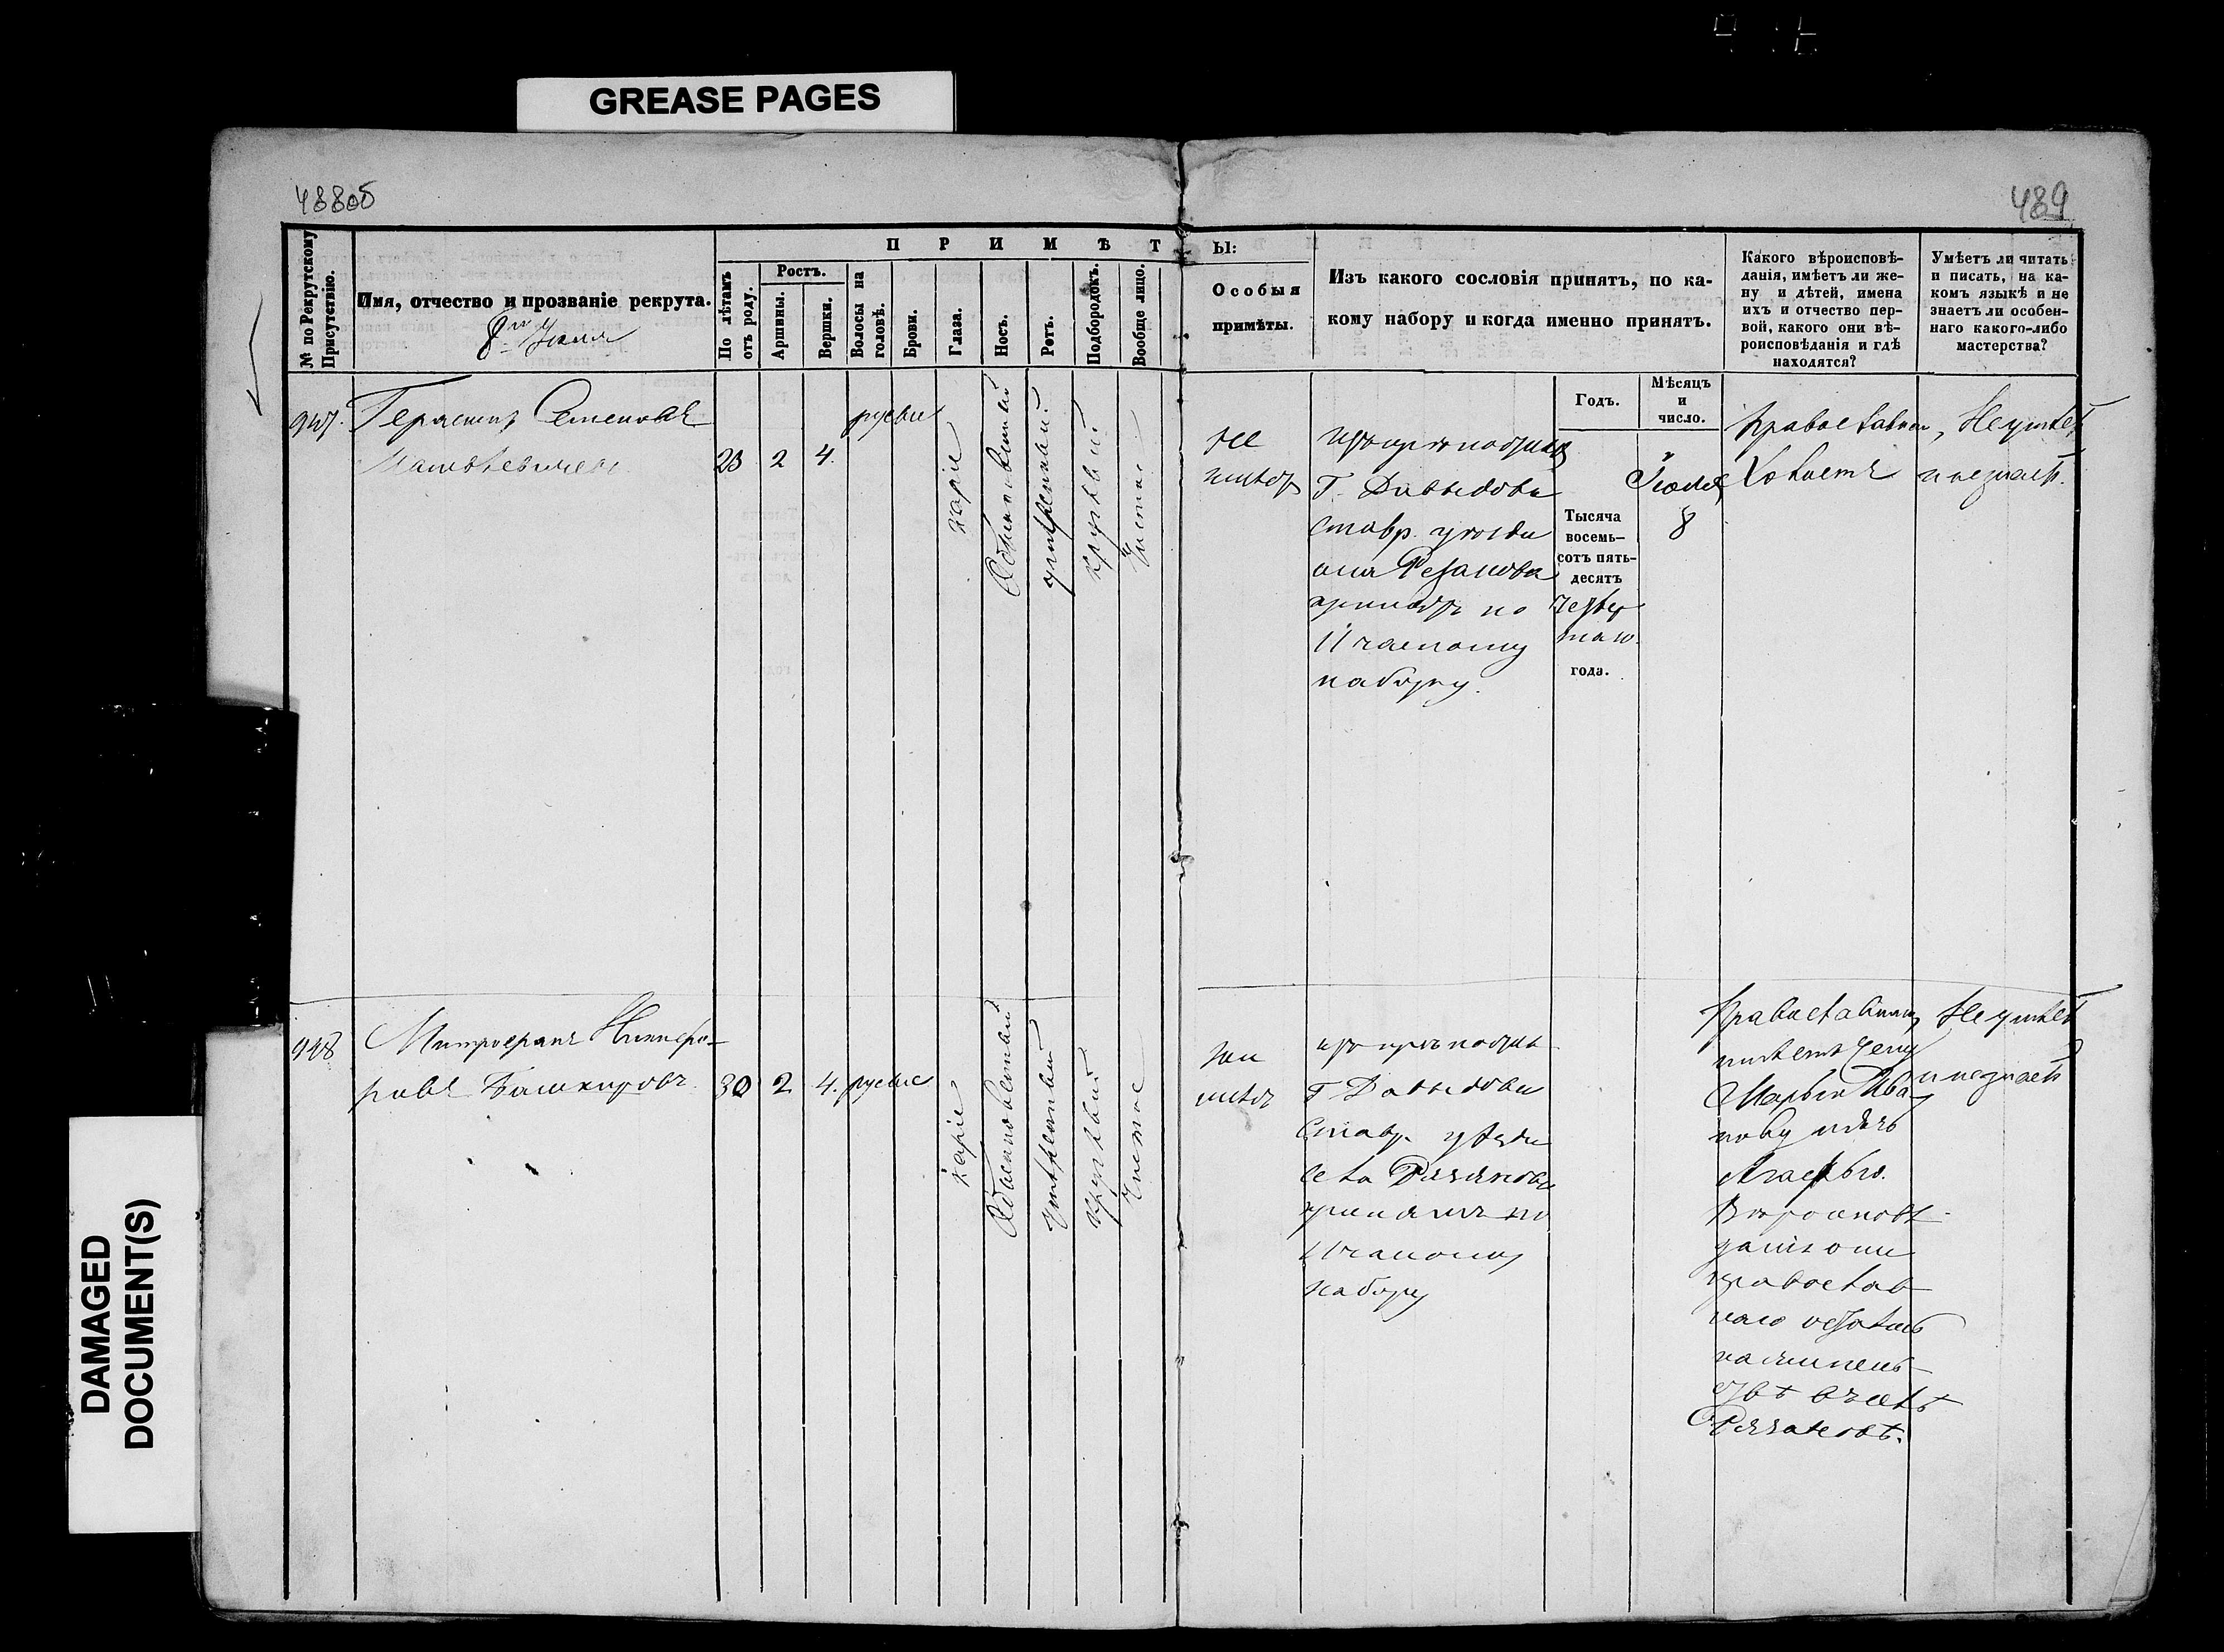 GREASE PAGES
488об
489
№ по Рекрутскому Присутствію.
Имя, отчество и прозваніе рекрута.
8го Іюля
П Р И М Ѣ Т Ы:
По лѣтамъ отъ роду.
Ростъ.
Аршины.
Вершки.
Волосы на головѣ.
Брови.
Глаза.
Носъ.
Ротъ.
Подбородокъ.
Вообще лицо.
Особыя
примѣты.
Изъ какого сословія принятъ, по ка-
кому набору и когда именно принятъ.
Какого вѣроисповѣ-
данія, имѣетъ ли же-
ну и дѣтей, имена
ихъ и отчество пер-
вой, какого они вѣ-
роисповѣданія и гдѣ
находятся?
Умѣетъ ли читать
и писать, на ка-
комъ языкѣ и не
знаетъ ли особен-
наго какого-либо
мастерства?
Годъ.
Мѣсяцъ
и
число.
947.
Герасимъ Семеновъ
23 2 4.
русые
каріе
обыкновенный
умѣренный
круглый
чистое
не
имѣетъ
изъ крѣпостныхъ
Г. Давыдова
Ставр. уѣзда
села Резанова
принятъ по
11 частному
набору.
Тысяча
восемь-
сотъ пять-
десятъ
четвер
таго
года.
Іюля
8
Православнаго,
холостъ
Не умѣетъ
и не знаетъ.
948
Митрофанъ Никифо-
ровъ Башкировъ
30 2 4. русые
каріе
обыкновенный
умѣренный
круглый
чистое
не
имѣетъ
изъ крѣпостныхъ
Г Давыдова
Ставр. уѣзда
села Рязанова
принятъ по
11 частному
набору
Православнаго,
имѣетъ жену
Марью Ива-
нову
Вѣроисповѣ-
данія они
православ
наго
Рязановѣ.
Не умѣетъ
и не знаетъ
DAMAGED
DOCUMENT(S)